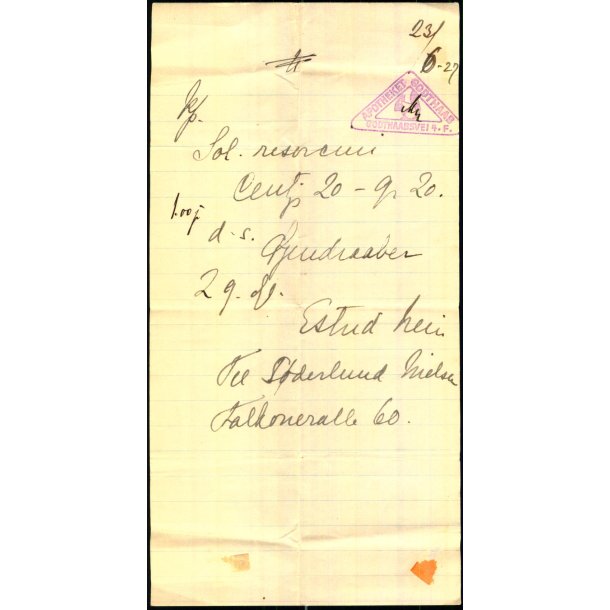 23/
6-27
APOTHEKET GODTHAAB
GODTHAABSVEJ 4. F.
Rp.
Sol. resorcini
Centj 20 - gr 20.
1.00
d. s. Øjendraaber
2 g. dl.
Estrid Hein
Til Søderlund Nielsen
Falkoneralle 60.